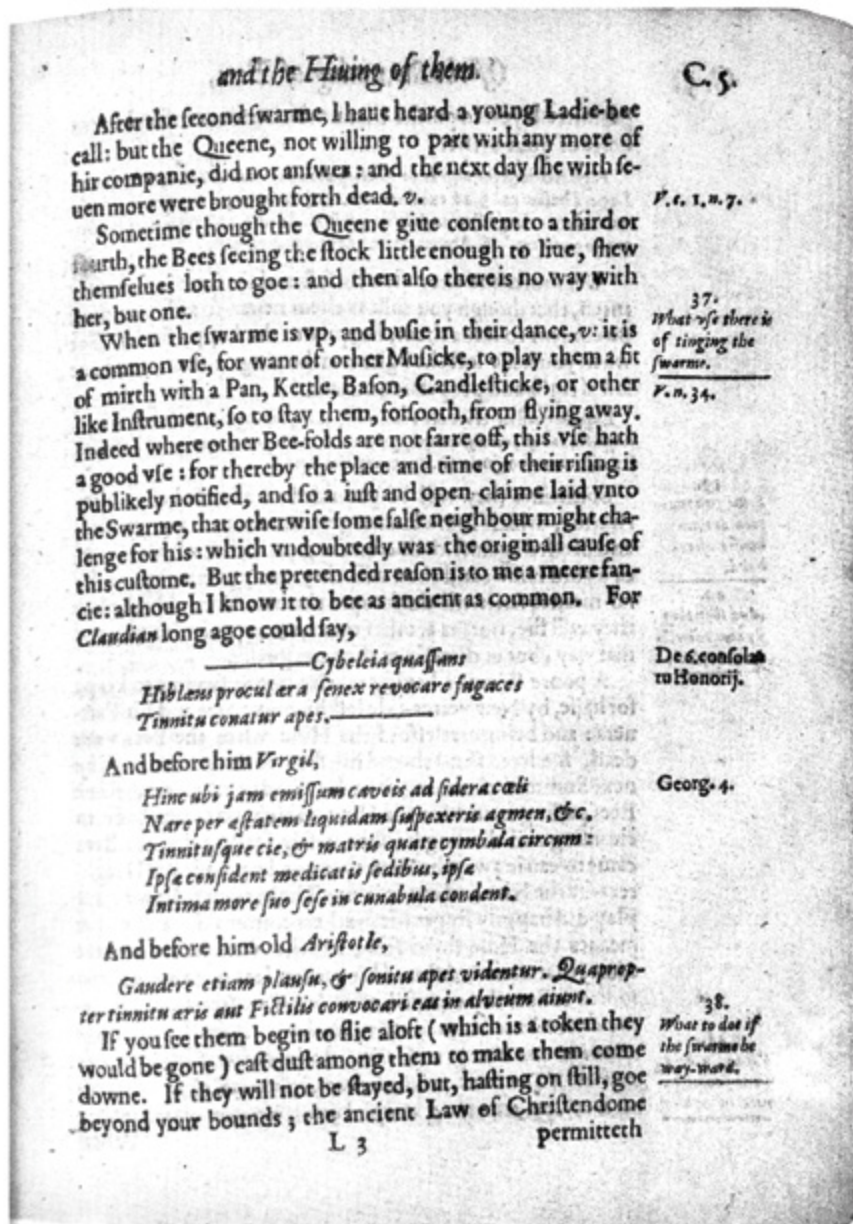 and the Hiuing of them.
C. 5.
After the ſecond ſwarme, I haue heard a young Ladie-bee
call: but the Queene, not willing to part with any more of
hir companie, did not anſwer: and the next day ſhe with ſe-
uen more were brought forth dead. v.
V. c. 1. n. 7.
Sometime though the Queene giue conſent to a third or
fourth, the Bees ſeeing the ſtock little enough to liue, ſhew
themſelues loth to goe: and then alſo there is no way with
her, but one.
37.
What vſe there is
of tinging the
ſwarme.
When the ſwarme is vp, and buſie in their dance, v: it is
a common vſe, for want of other Muſicke, to play them a fit
of mirth with a Pan, Kettle, Baſon, Candleſticke, or other
V. n. 34.
like Inſtrument, ſo to ſtay them, forſooth, from flying away.
Indeed where other Bee-folds are not farre off, this vſe hath
a good vſe: for thereby the place and time of their riſing is
publikely notified, and ſo a iuſt and open claime laid vnto
the Swarme, that otherwiſe ſome falſe neighbour might cha-
lenge for his: which vndoubtedly was the originall cauſe of
this cuſtome. But the pretended reaſon is to me a meere fan-
cie: although I know it to bee as ancient as common. For
Claudian long agoe could ſay,
Cybeleia quaſſans
De 6. conſola
tu Honorij.
Hiblæus procul æra ſenex revocare fugaces
Tinnitu conatur apes.
And before him Virgil,
Georg. 4.
Hinc ubi jam emiſſum caveis ad ſidera cœli
Nare per æſtatem liquidam ſuſpexeris agmen, &c.
Tinnituſque cie, & matris quate cymbala circum
Ipſæ conſident medicatis ſedibus, ipſæ
Intima more ſuo ſeſe in cunabula condent.
And before him old Ariſtotle,
Gaudere etiam plauſu, & ſonitu apes videntur. Quaprop-
ter tinnitu æris aut Fictilis convocari eas in alveum aiunt.
38.
What to doe if
the ſwarme be
way-ward.
If you ſee them begin to flie aloft (which is a token they
would be gone) caſt duſt among them to make them come
downe. If they will not be ſtayed, but, haſting on ſtill, goe
beyond your bounds; the ancient Law of Chriſtendome
L 3
permitteth